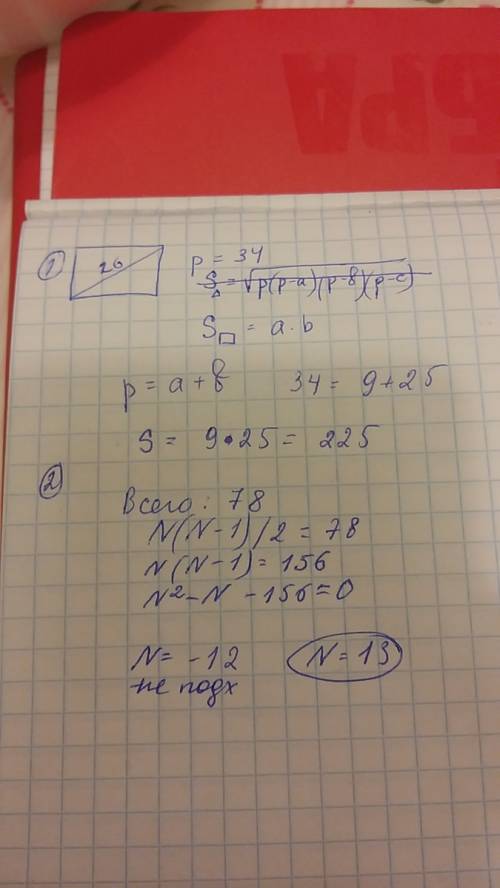 БРА
① 26 p = 34
S△ = √p(p-a)(p-b)(p-c)
S□ = a · b
p = a + b 34 = 9 + 25
S = 9 · 25 = 225
②
Всего: 78
N(N-1)/2 = 78
N(N-1) = 156
N² - N - 156 = 0
N = -12 N = 13
не подх